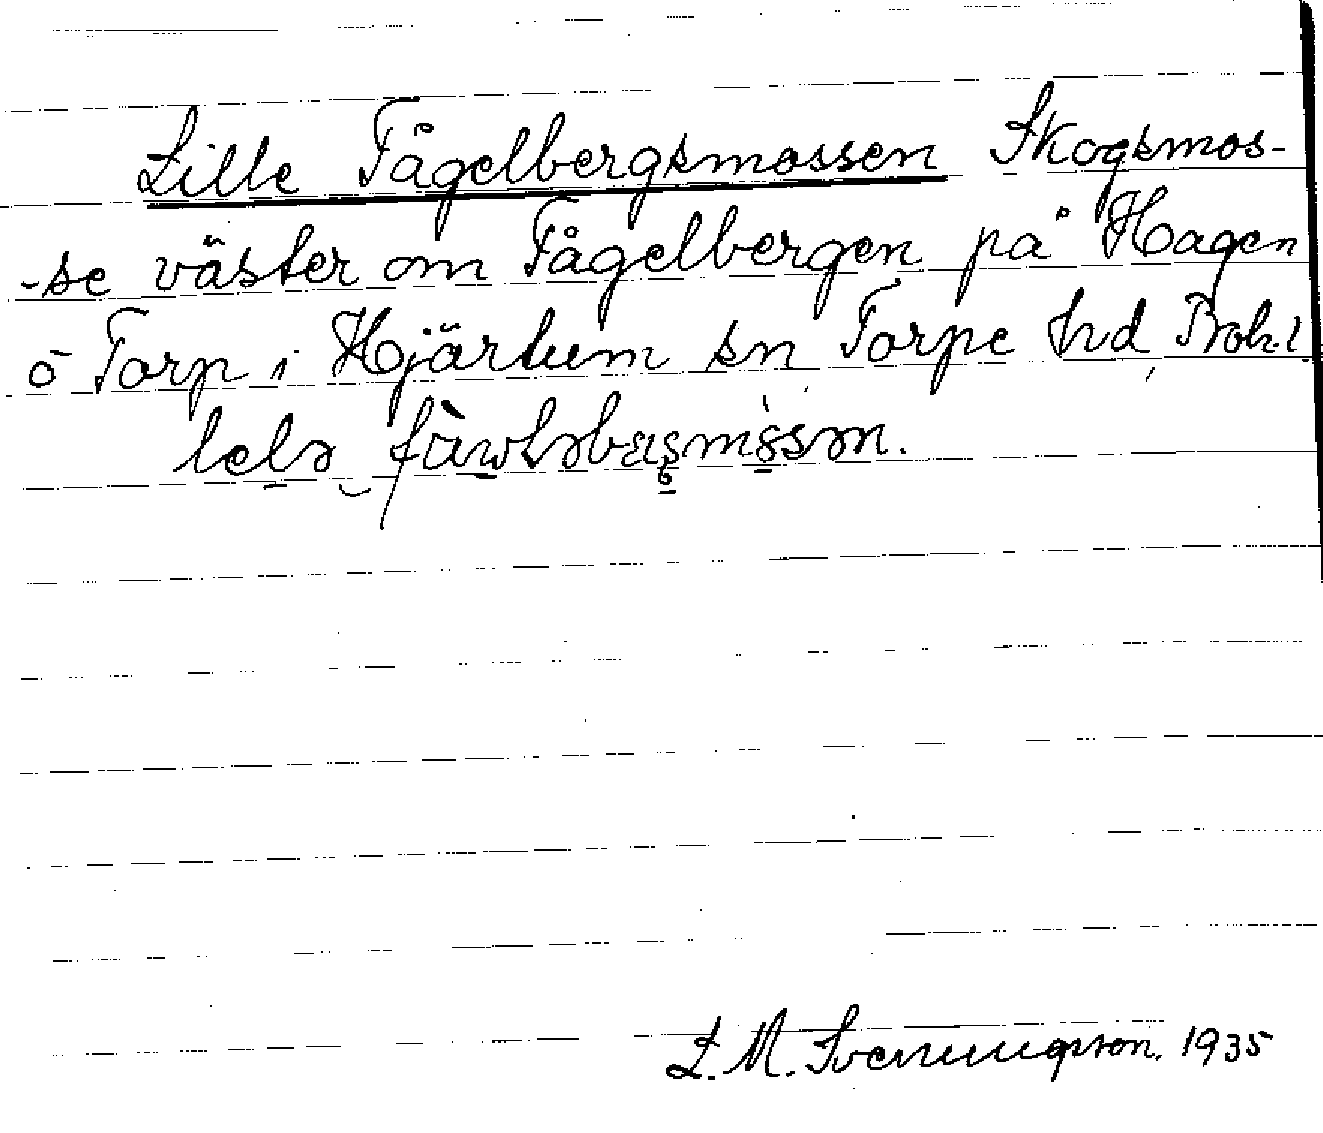 Lille Fågelbergsmossen Skogsmos-
-se väster om Fågelbergen på Hagen
ö Torp i Hjärtum sn Torpe hd Bohl
lelə fàwləbæsmssən.
L. M. Svenungsson. 1935